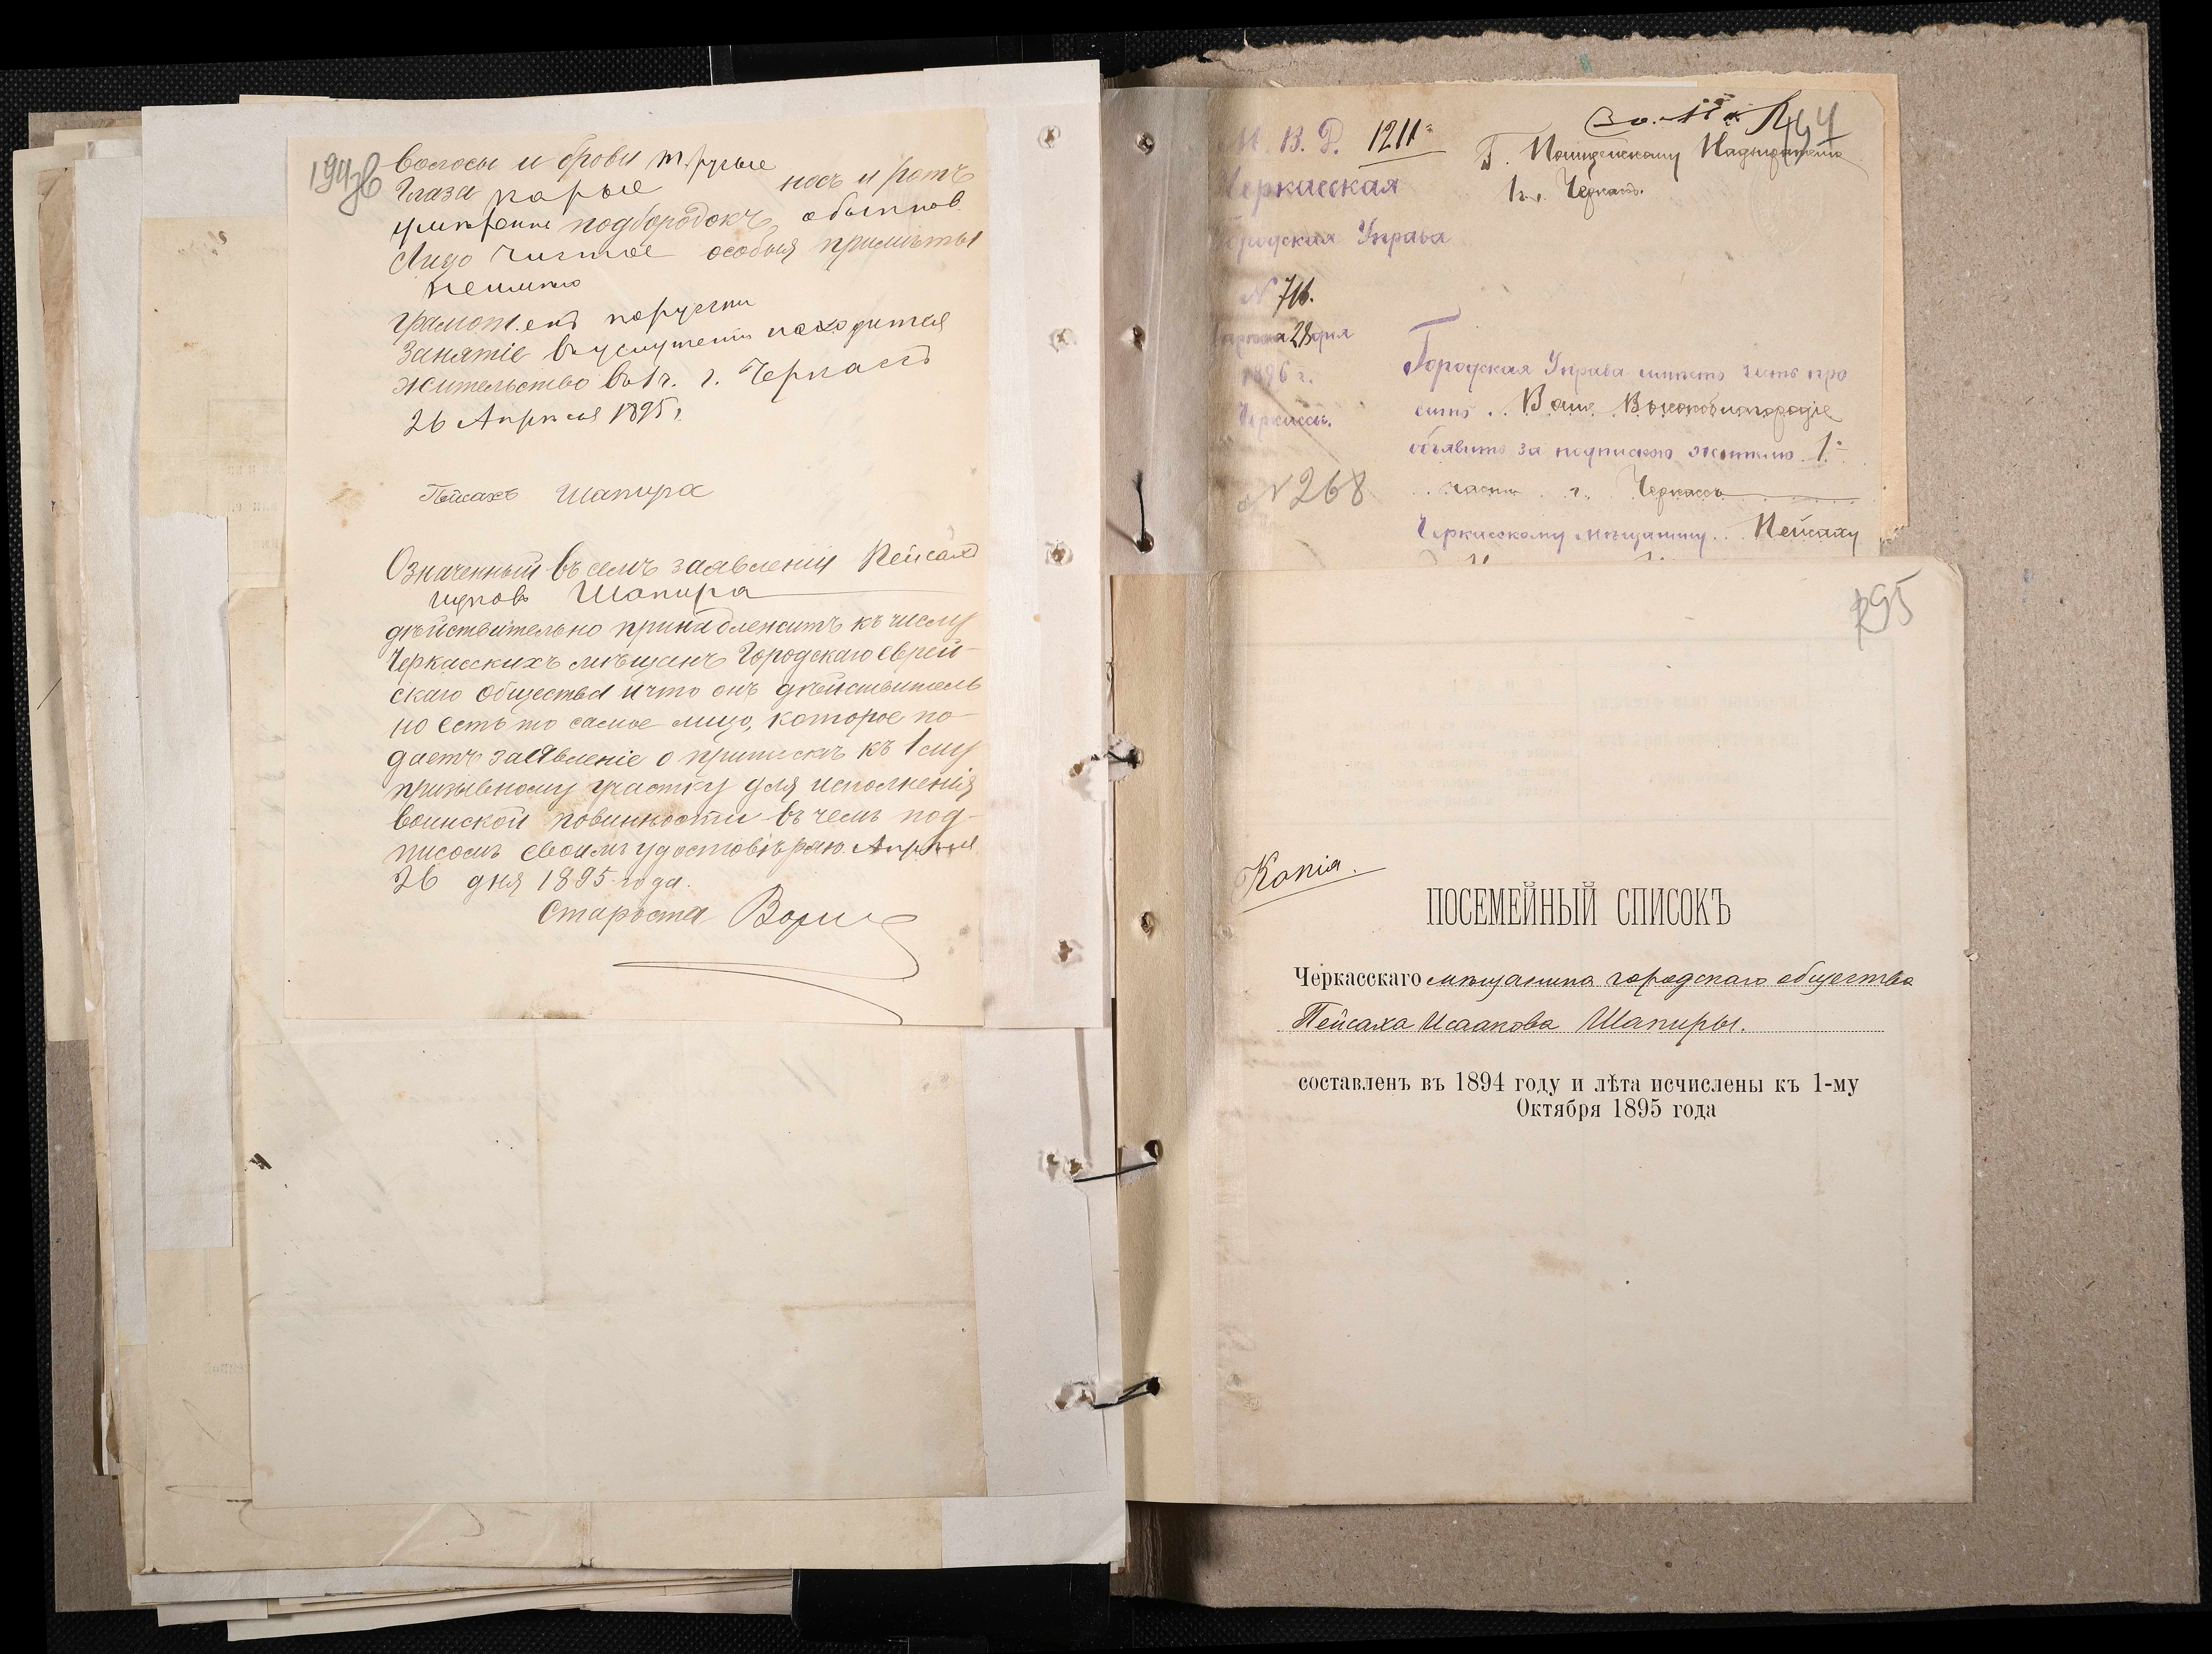 194об
Волосы и брови т. русые
Глаза карые носъ и ротъ
умѣренные подбородокъ обыкнов.
Лицо чистое особыя примѣты
неимѣю
грамот.енъ порусски
Занятіе въ услуженіи находится
жительство въ 1 ч. г. Черкассъ
26 Апрѣля 1895 г.
Пейсахъ Шапиро
Означенный въ семъ заявленіи Пейсахъ
Ицковъ Шапира
дѣйствительно принадлежитъ къ числу
Черкасскихъ мѣщанъ Городскаго еврей-
скаго общества и что онъ дѣйствитель
но есть то самое лицо, которое по-
даетъ заявленіе о припискѣ къ 1 му
призывному участку для исполненія
воинской повинности въ чемъ под-
писомъ своимъ удостовѣряю. Апрѣля
26 дня 1895 года.
Староста
194
М. В. Д. 1211
Г. Полицейскому Надзирателю
1 ч. Черкассъ.
Черкасская
Городская Управа
N 716.
28 дня
1896 г.
Черкассы.
N 268
Городская Управа имѣетъ честь про
ситъ Ваше Высокоблагородіе
объявить за подпискою жителю 1-
части г. Черкассъ
Черкасскому мѣщанину Пейсаху
195
Копія.
ПОСЕМЕЙНЫЙ СПИСОКЪ
Черкасскаго мѣщанина городскаго общества
Пейсаха Исаакова Шапиры.
составленъ въ 1894 году и лѣта исчислены къ 1-му
Октября 1895 года